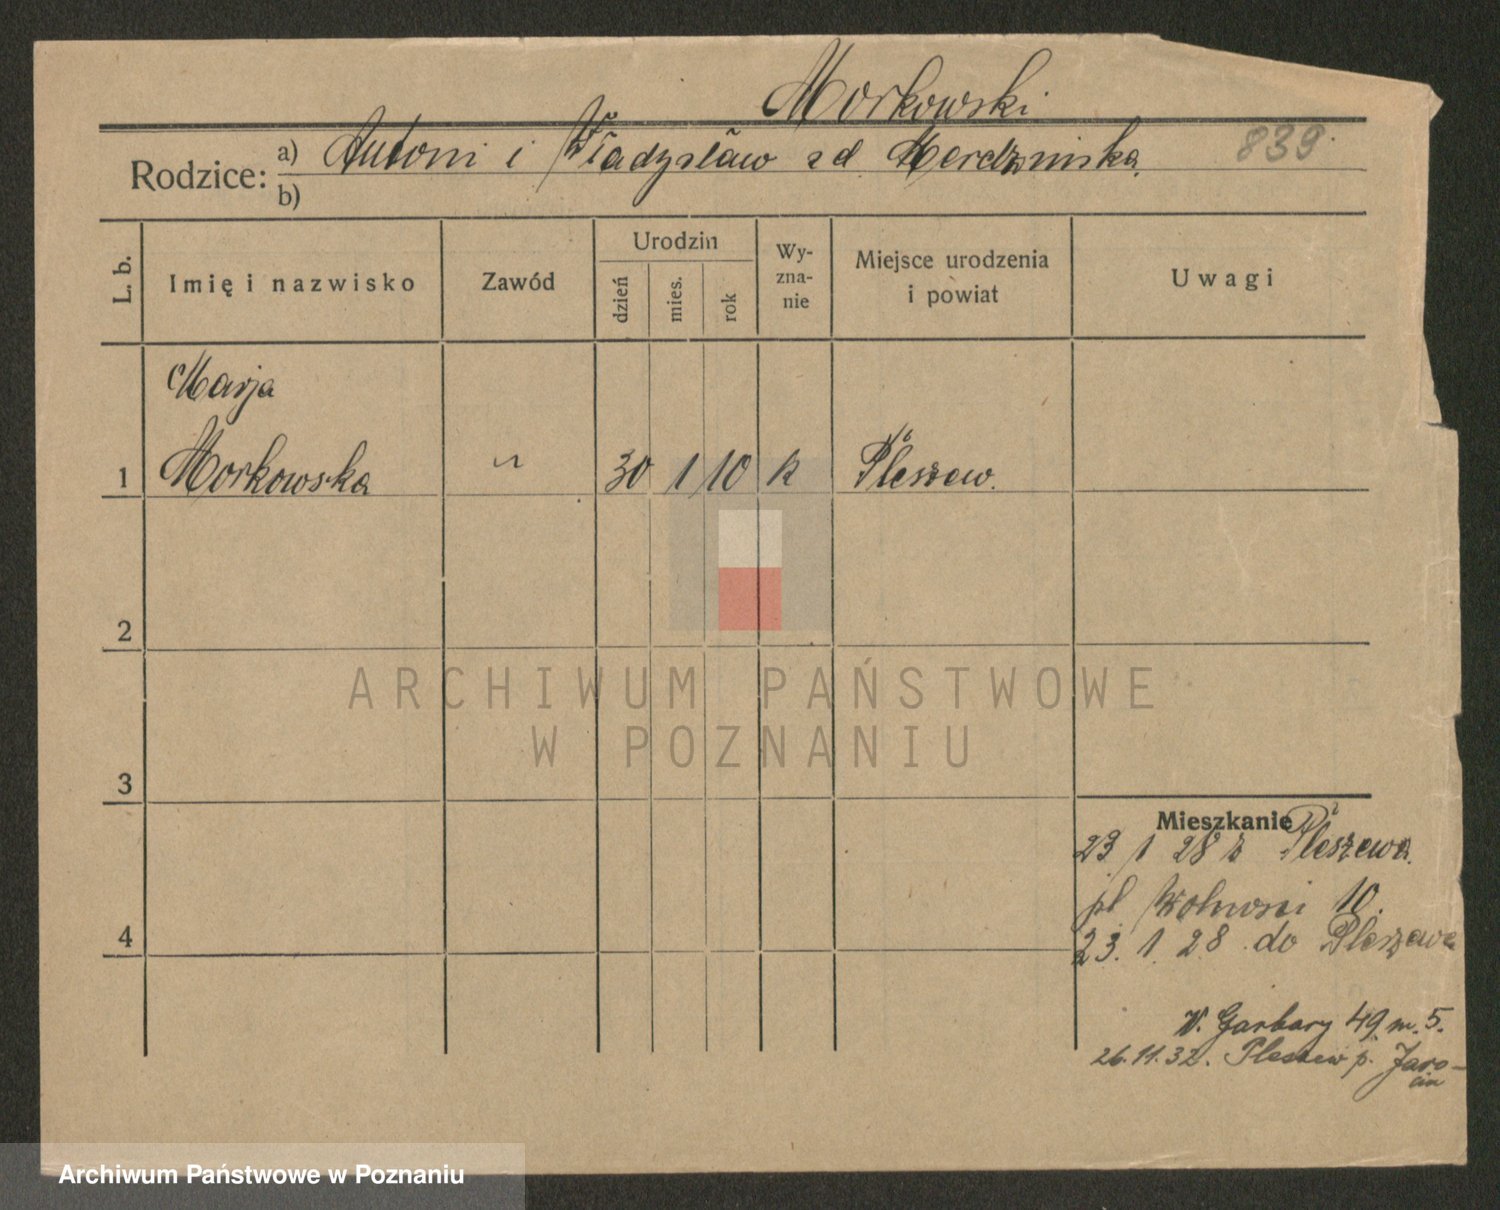 Morkowski
839.
Rodzice: a) Antoni i Władysław zd
b)
L. b.
Imię i nazwisko
Zawód
Urodzin
dzień
mies.
rok
Wy-
zna-
nie
Miejsce urodzenia
i powiat
Uwagi
Marja
1 Morkowska 30 1 10 k Pleszew.
2
ARCHIWUM PAŃSTWOWE
W POZNANIU
3
Mieszkanie
23 1 28 z Pleszewa.
pl Wolności 10.
4
23. 1. 28. do Pleszewa
W. Garbary 49 m. 5.
26.11.32. Pleszew p. Jaro-
cin
Archiwum Państwowe w Poznaniu